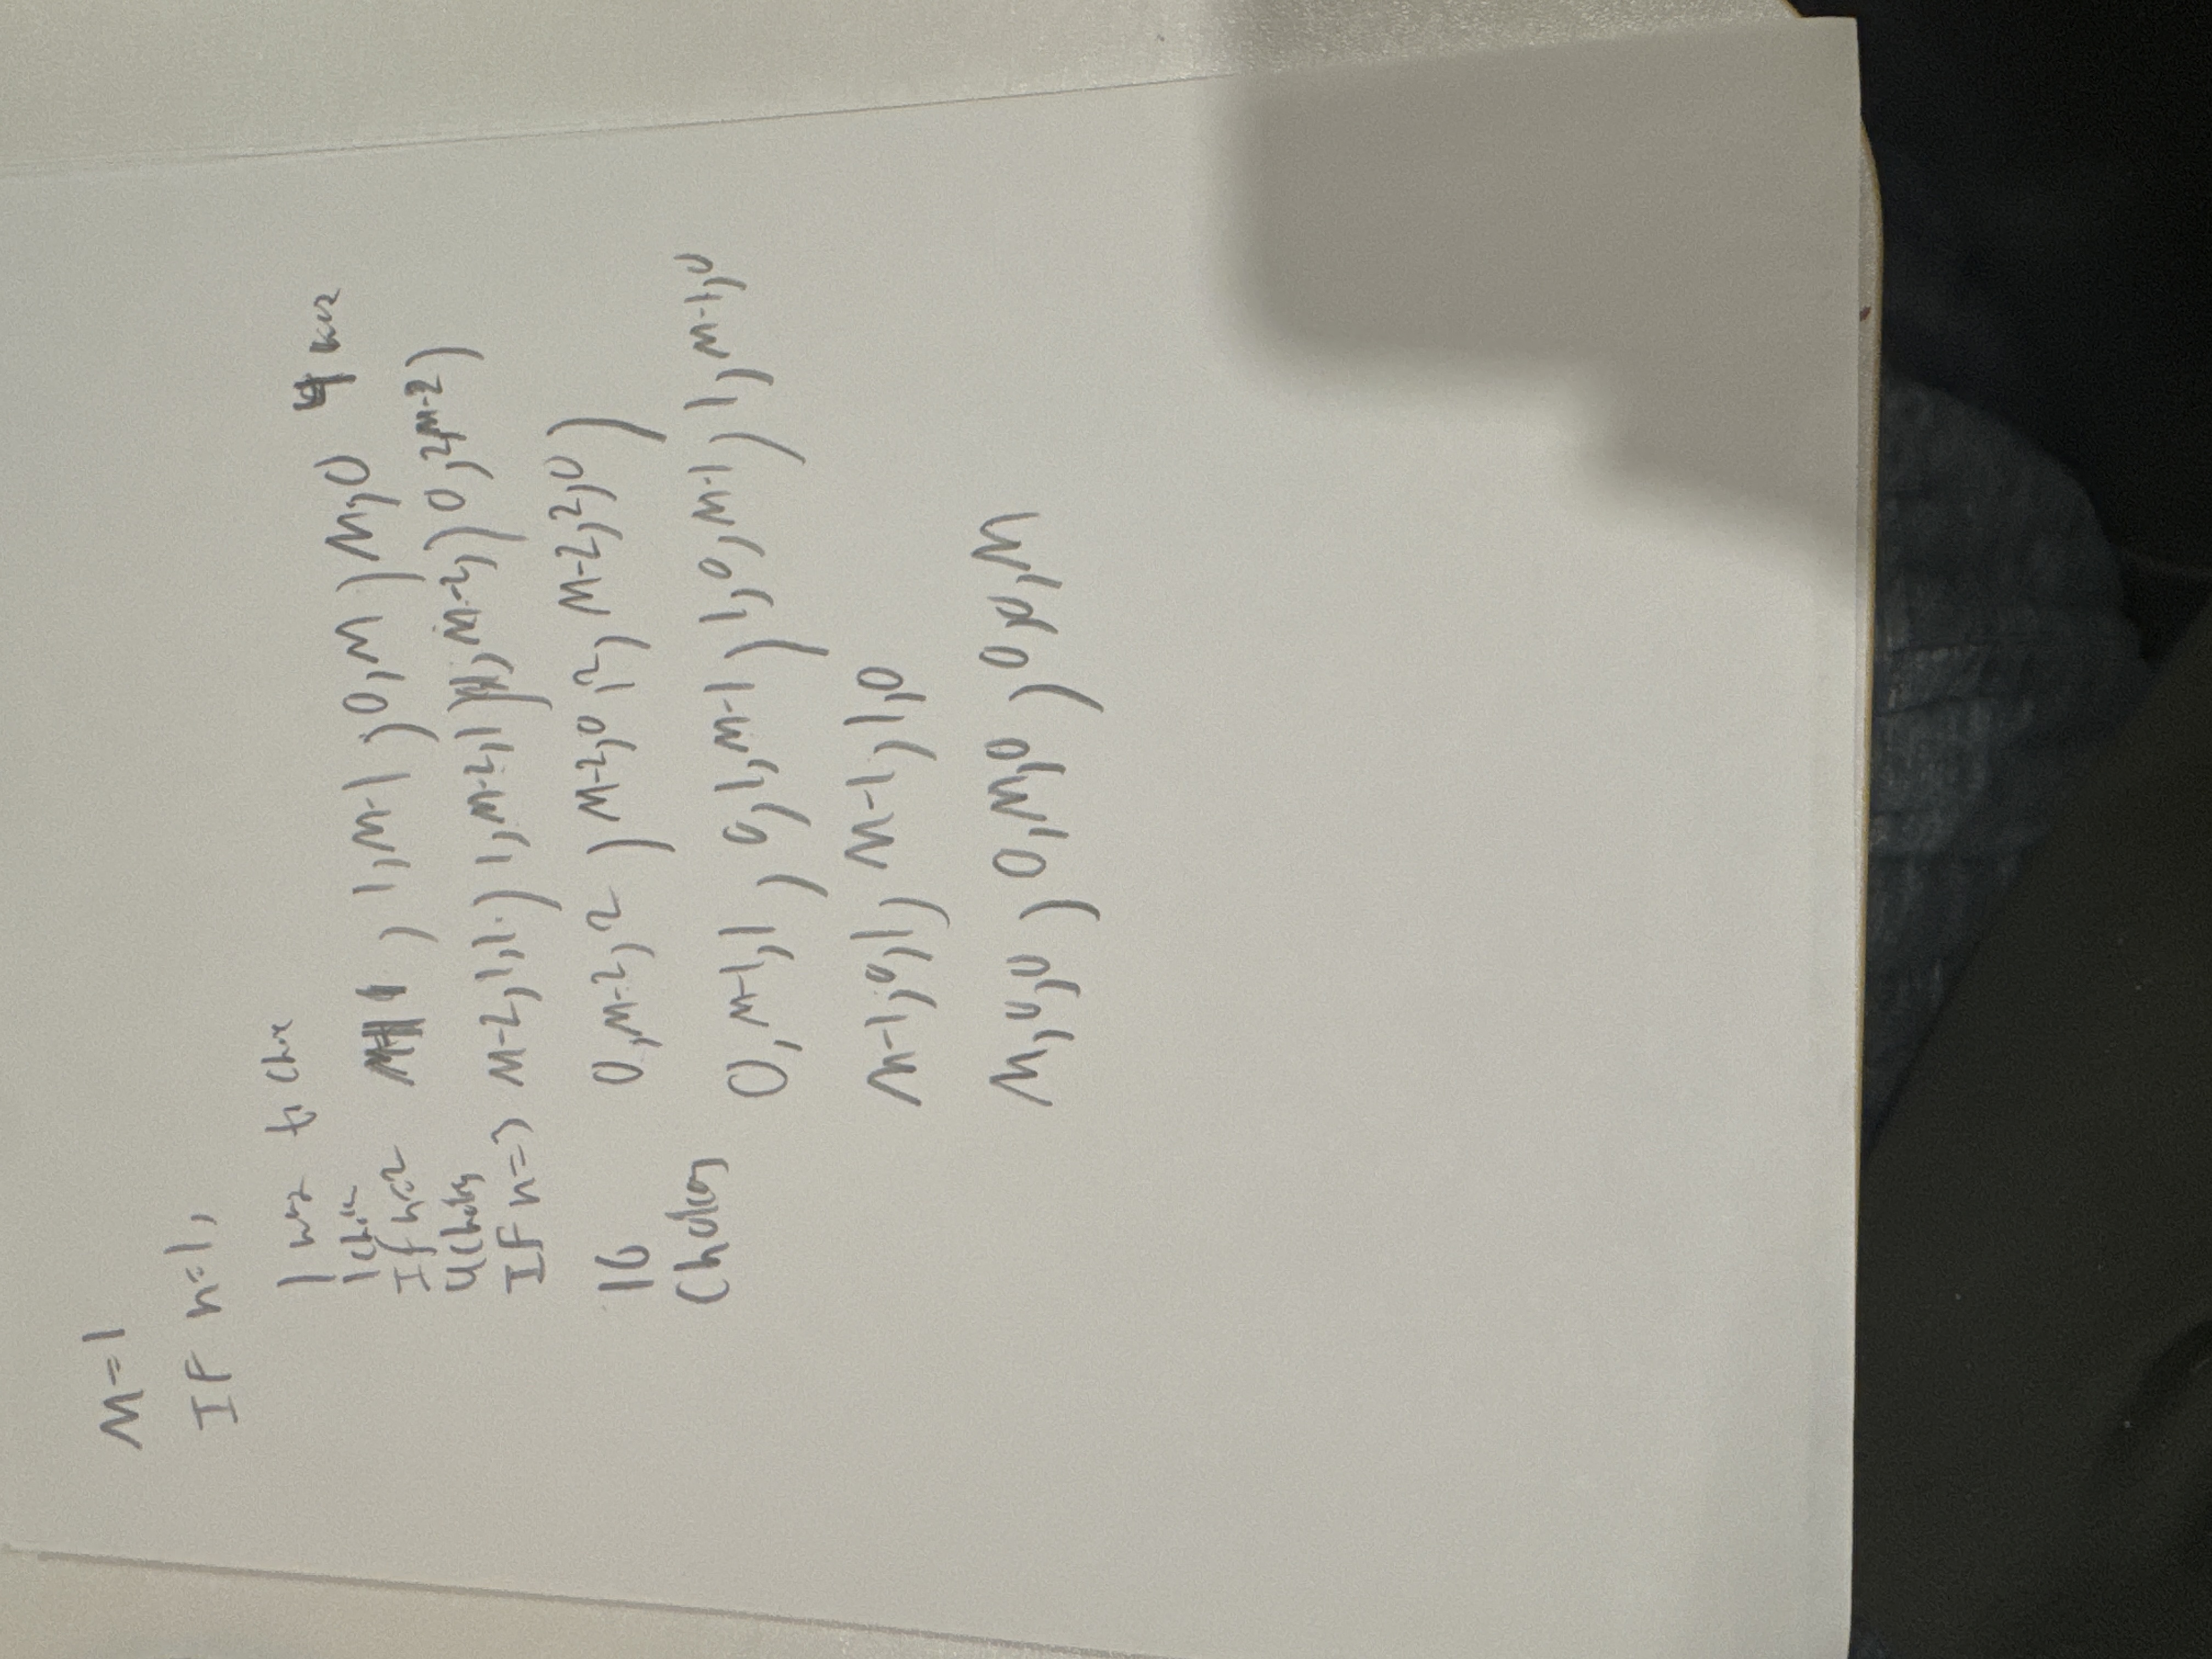 M=1
IF n=1,
1 way to
1
If n=2 1, m-1, 0, m, m, 0 4
4
IF n=3 m-2, 1, 1, 1, m-2, 1, m-2, 0, 2, m-2
0, m-2, 2, m-2, 0, 2, m-2, 2, 0,
16
Choices 0, m-1, 1, 0, 1, m-1, 1, 0, m-1, 1, m-1, 0
m-1, 0, 1, m-1, 1, 0
m, 0, 0, 0, m, 0, 0, 0, m